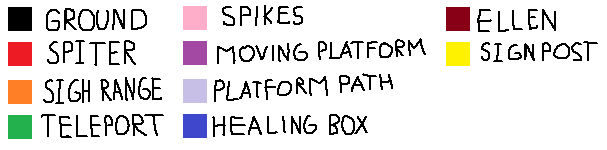 GROUND
SPITER
SIGH RANGE
TELEPORT
SPIKES
MOVING PLATFORM
PLATFORM PATH
HEALING BOX
ELLEN
SIGN POST